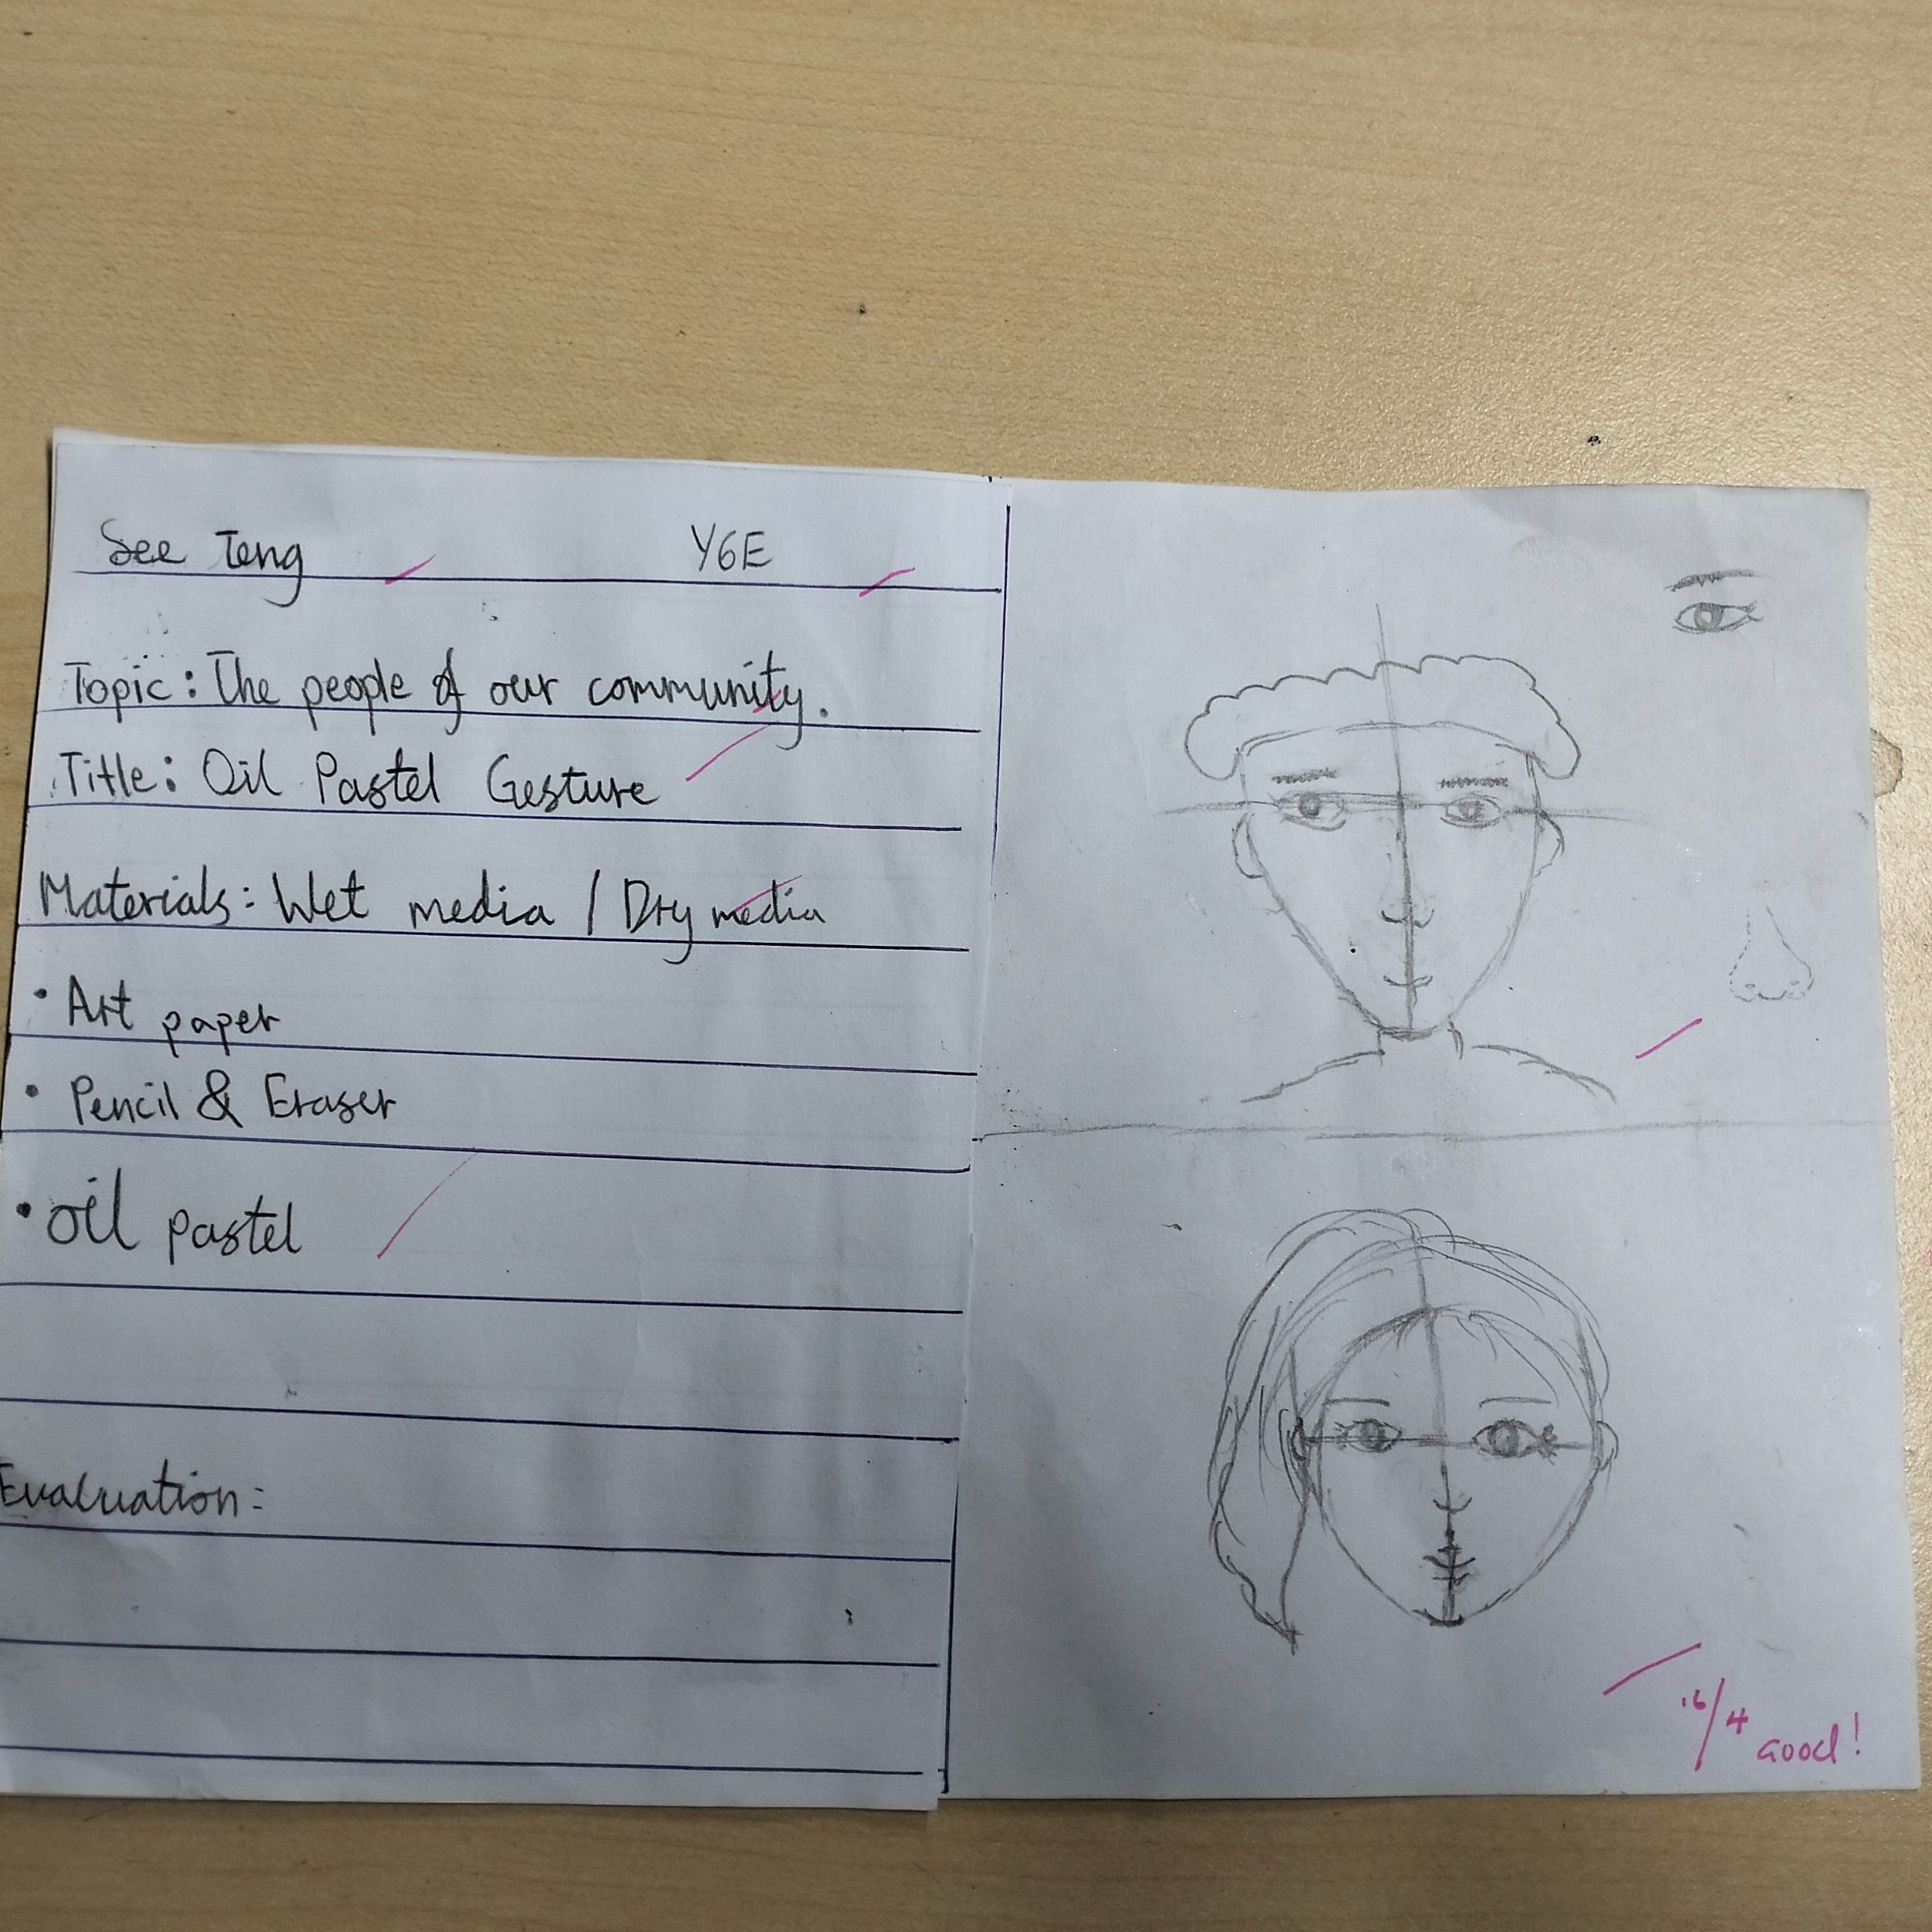 See Teng Y6E
Topic: The people of our community.
Title: Oil Pastel Gesture
Materials: Wet media / Dry media
• Art paper
• Pencil & Eraser
• oil pastel
Evaluation:
16/4 Good!